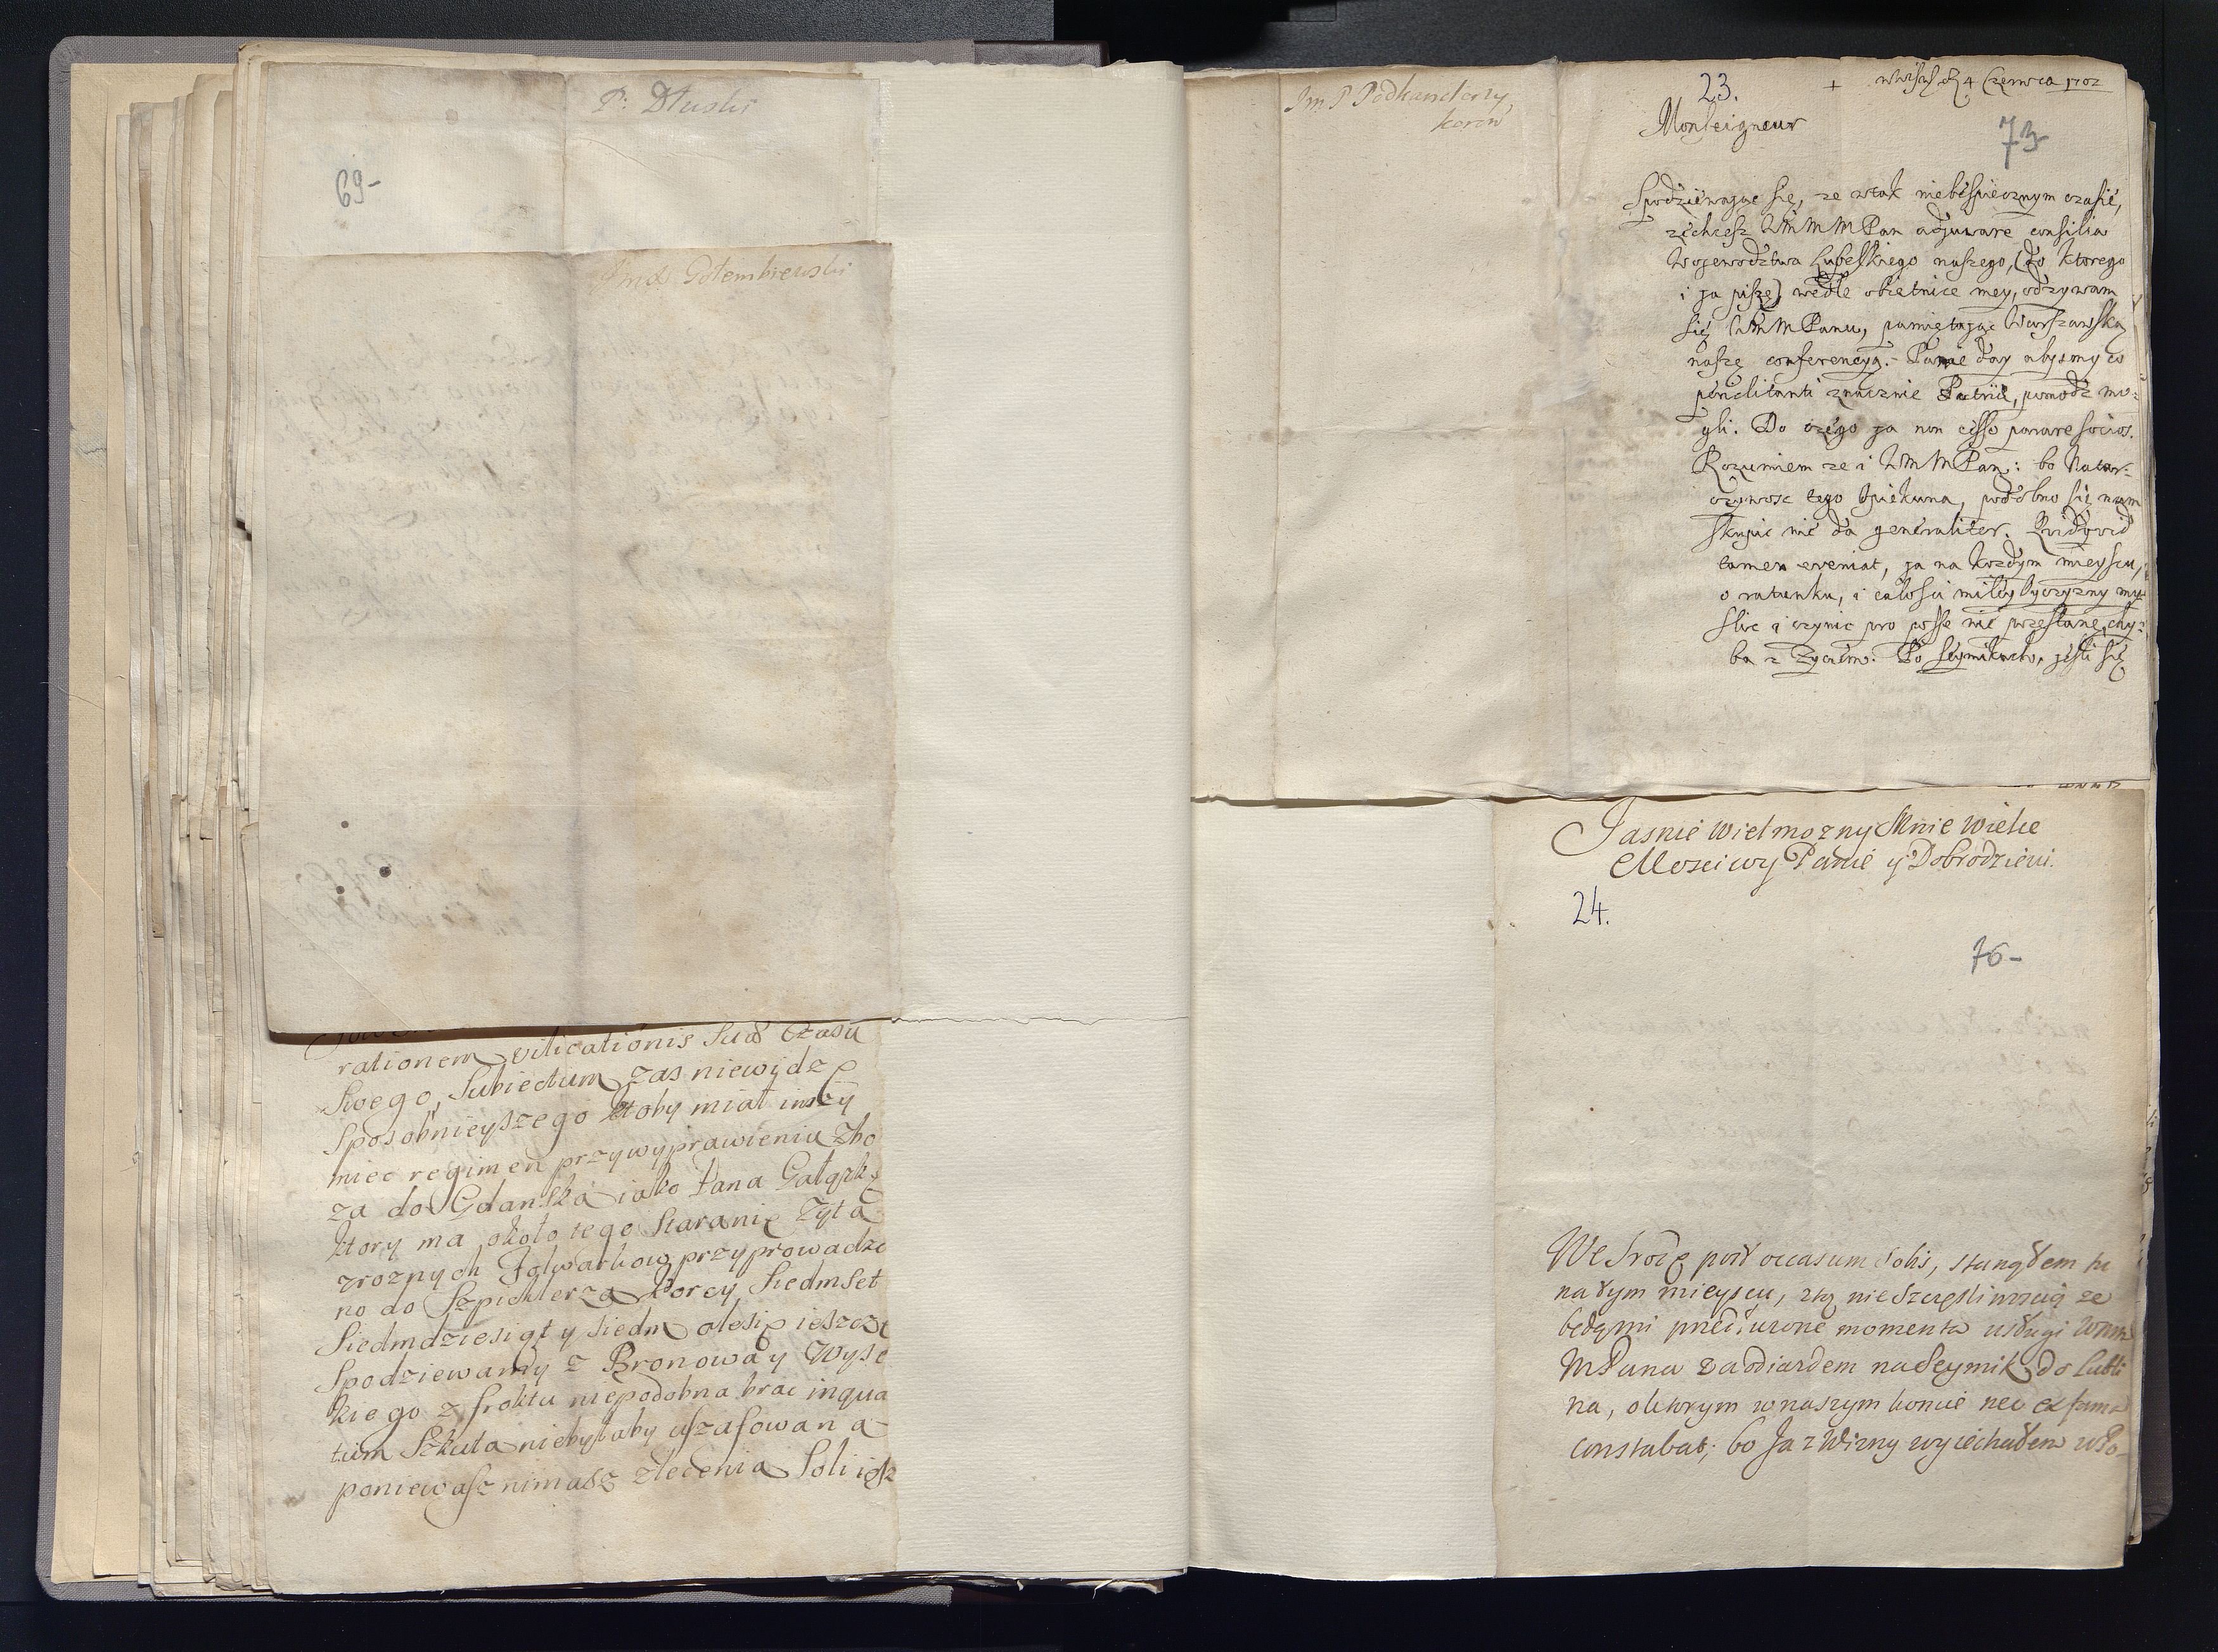 P: Dłuski
69-
Jmć Gołembiewski
rationem vilicationis Suæ Czasu
Swego, Subiectum zas niewydzę
Sposobnieyszego ktoby miał inszy
miec regimen przy wyprawieniu Zbo
za do Gdanska iako Pana Gałązkę
ktory ma około tego Staranie Zyta
zroznych Folwarkow przyprowadzo
no do Szpichlerza korcy Siedmset
Siedmdziesiąt y Siedm alesię ieszcze
Spodziewamy z Bronowa y Wyso
kiego z froktu niepodobna brac inqua
tum Szkuta niebyłaby uszafowana
poniewasz nimasz zlecenia Soli iesz
Jm P Podkanclerzy
koron
23.
+ 4 Czerwca 1702
Monseigneur
73-
Spodziewaiąc się, ze w tak niebespiecznym czasie,
zechcesz WMMMPan adjuware consilia
Wojewodztwa Lubelskiego naszego, (do ktorego
i ja piszę) wedle obietnice mey, odzywam
się WMMPanu, pamiętając Warszawską
naszę conferencyą. Panie day abysmy co
periclitanti znacznie Patriæ, pomodz mo-
gli. Do czego ja non cesso parare socios.
Rozumiem ze i WMMPan: bo Natar-
czywosc tego Opiekuna, podobno się nam
skupic nie da generaliter. Quidquid
tamen eveniat, ja na kozdym mieyscu,
o ratunku, i całosci miłey Oyczyzny my-
slic i czynic pro posse nie przestanę, chy-
ba z Zyciem. Po Seymikach, jesli się
Jasnie Wielmozny Mnie Wielce
Mosciwy Panie y Dobrodzieiu.
24.
76-
We Srodę post occasum Solis, stanąłem tu
na tym mieyscu, ztą nieszczęsliwoscią ze
będąc mi momenta usługi Wmm
MPana zaodiardem na Seymik do Lubli
na, oktorym wnaszym koncie nec ex fama
constabat; bo Ja z Wizny wyiechałem wPo-